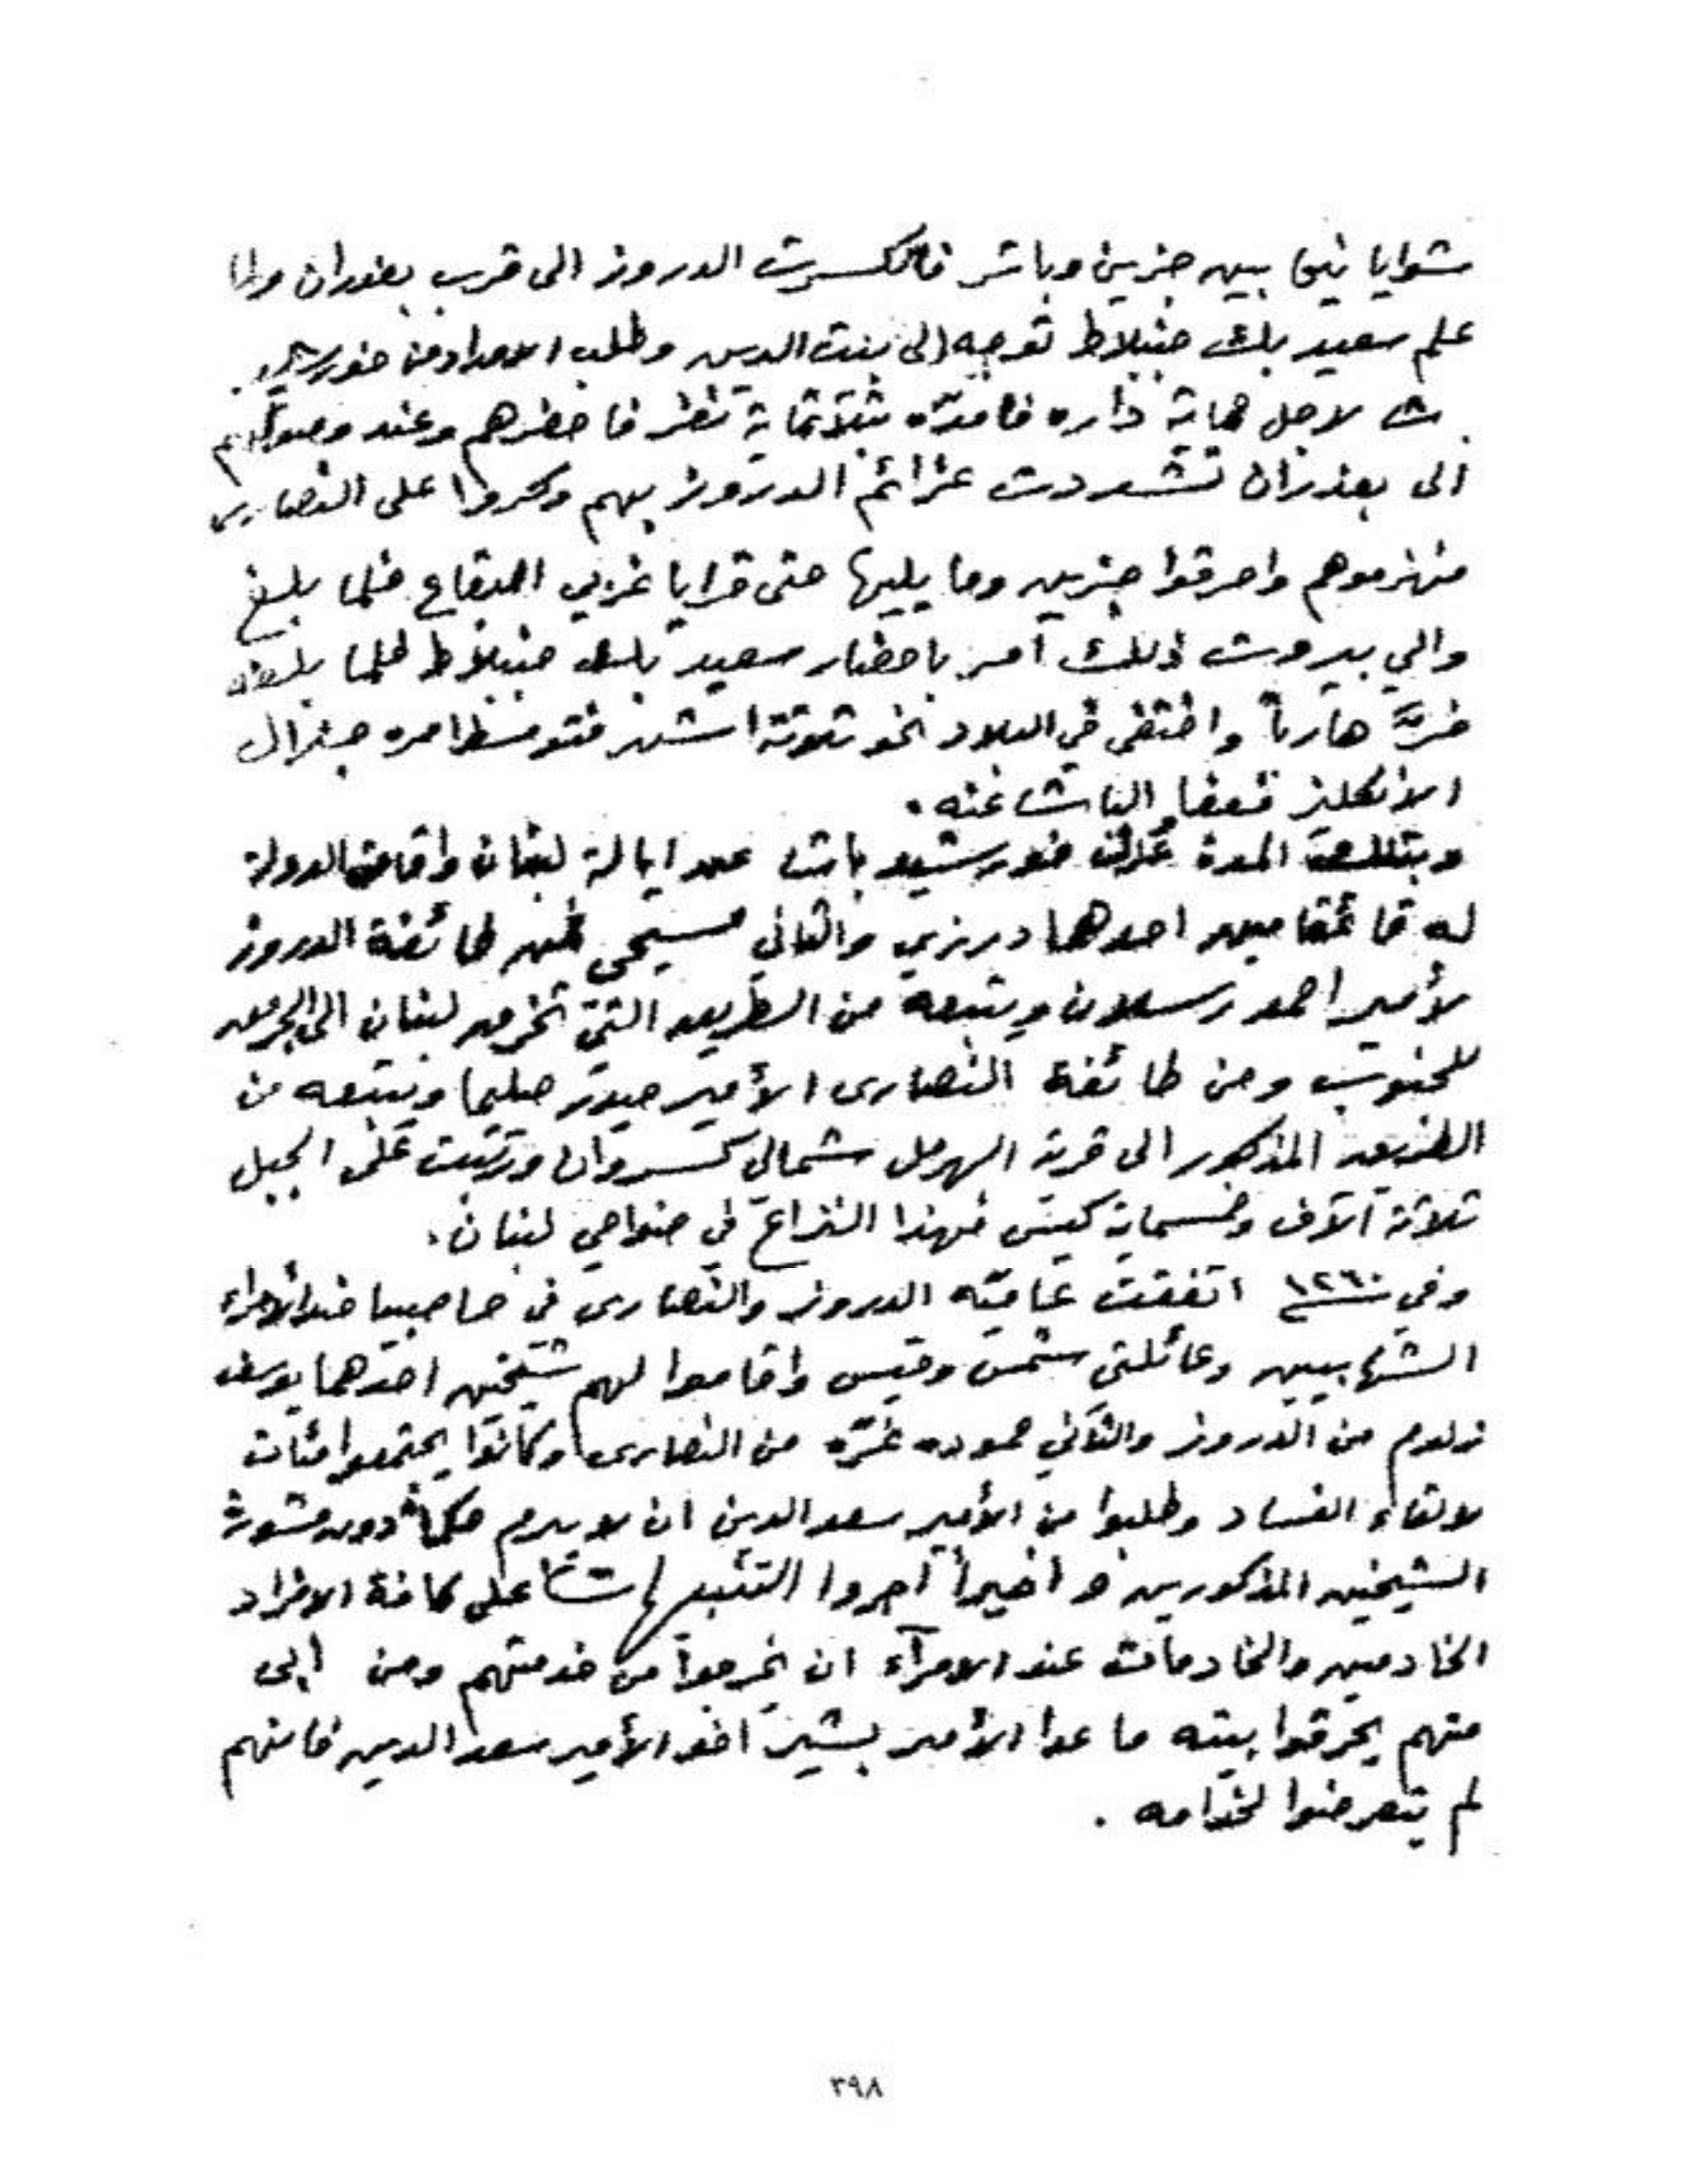 شوايا نيحا بين جزين وباتر فانكسرت الدروز الى قرب بعذران ولما
علم سعيد بك جنبلاط توجه الى بيت الدين وطلب الامداد من خورشيد
شا لاجل حماية داره فامدّه بثلاثماية نفر فاحضرهم وعند وصولهم
الى بعذران تشددت عزائم الدروز بهم وكروا على النصارى
فهزموهم واحرقوا جزين وما يليها حتى قرايا غربي البقاع فلما بلغ
والي بيروت ذلك أمر باحضار سعيد بك جنبلاط فلما بلغه
فرَّ هارباً واختفى في البلاد نحو ثلاثة اشهر فتوسط امره جنرال
الانكليز فعفا الباشا عنه.
وبتلك المدة خورشيد باشا عن ايالة لبنان واقامة الدولة
له قائمقامين احدهما درزي والثاني مسيحي فمن طائفة الدروز
لأمير احمد رسلان ويتبعه من الطريق التي تخرم لبنان الى
للجنوب ومن طائفة النصارى الأمير حيدر صليما ويتبعه من
الطريق المذكور الى قرية الهرمل شمالي كسروان وترتبت على الجبل
ثلاثة آلاف وخسماية كيس فهذا النزاع في ضواحي لبنان.
وفي سنة ١٢٦٠ اتفقت عاميّة الدروز والنصارى في حاصبيا ضد الأمراء
الشهابيين وعائلتي شمس وقيس واقاموا لهم شيخين احدهما يوسف
من الدروز والثاني حموده غرّه من النصارى وكانوا يجتمعوا مئات
لالقاء الفساد وطلبوا من الأمير سعد الدين ان لا يبرم حكماً دون مشورة
الشيخين المذكورين و أخيراً أجروا على كافة الافراد
الخادمين والخادمات عند الامرآء ان يخرجوا من خدمتهم ومن ابى
منهم يحرقوا بيته ما عدا الأمير بشير اخو الأمير سعد الدين فانهم
لم يتعرضوا لخدامه .
٣٩٨